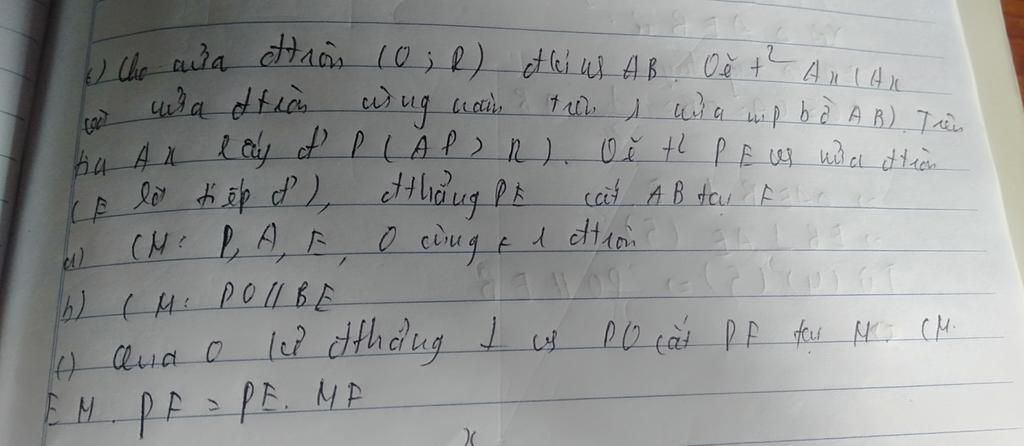 Cho nửa đtròn (O; R) đkí AB. Vẽ t² Ax (Ax
và nửa đtròn cùng trên 1 nửa mp bờ AB). Trên
Ax lấy đ' P (AP > R). Vẽ t² PE vs nửa đtròn
(E là tiếp đ'), đthẳng PE cắt AB tại F
a) CM: P, A, E, O cùng ϵ 1 đtròn
b) CM: PO // BE
c) Qua O kẻ đthẳng ⊥ vs PO cắt PF tại M. CM.
EM. PF = PE. MF